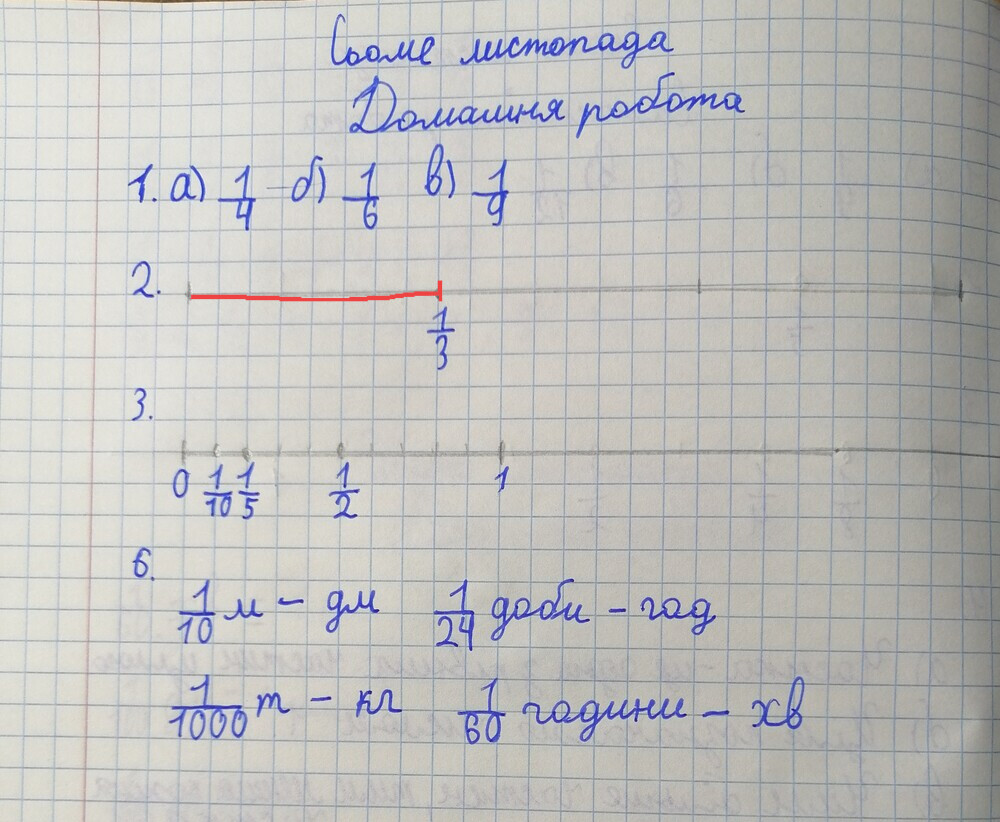 Сьоме листопада
Домашня робота
1. а) 1/4 б) 1/6 в) 1/9
2.
1/3
3.
0 1/10 1/5 1/2 1
6.
1/10 м – дм 1/24 доби – год
1/1000 т – кг 1/60 години – хв